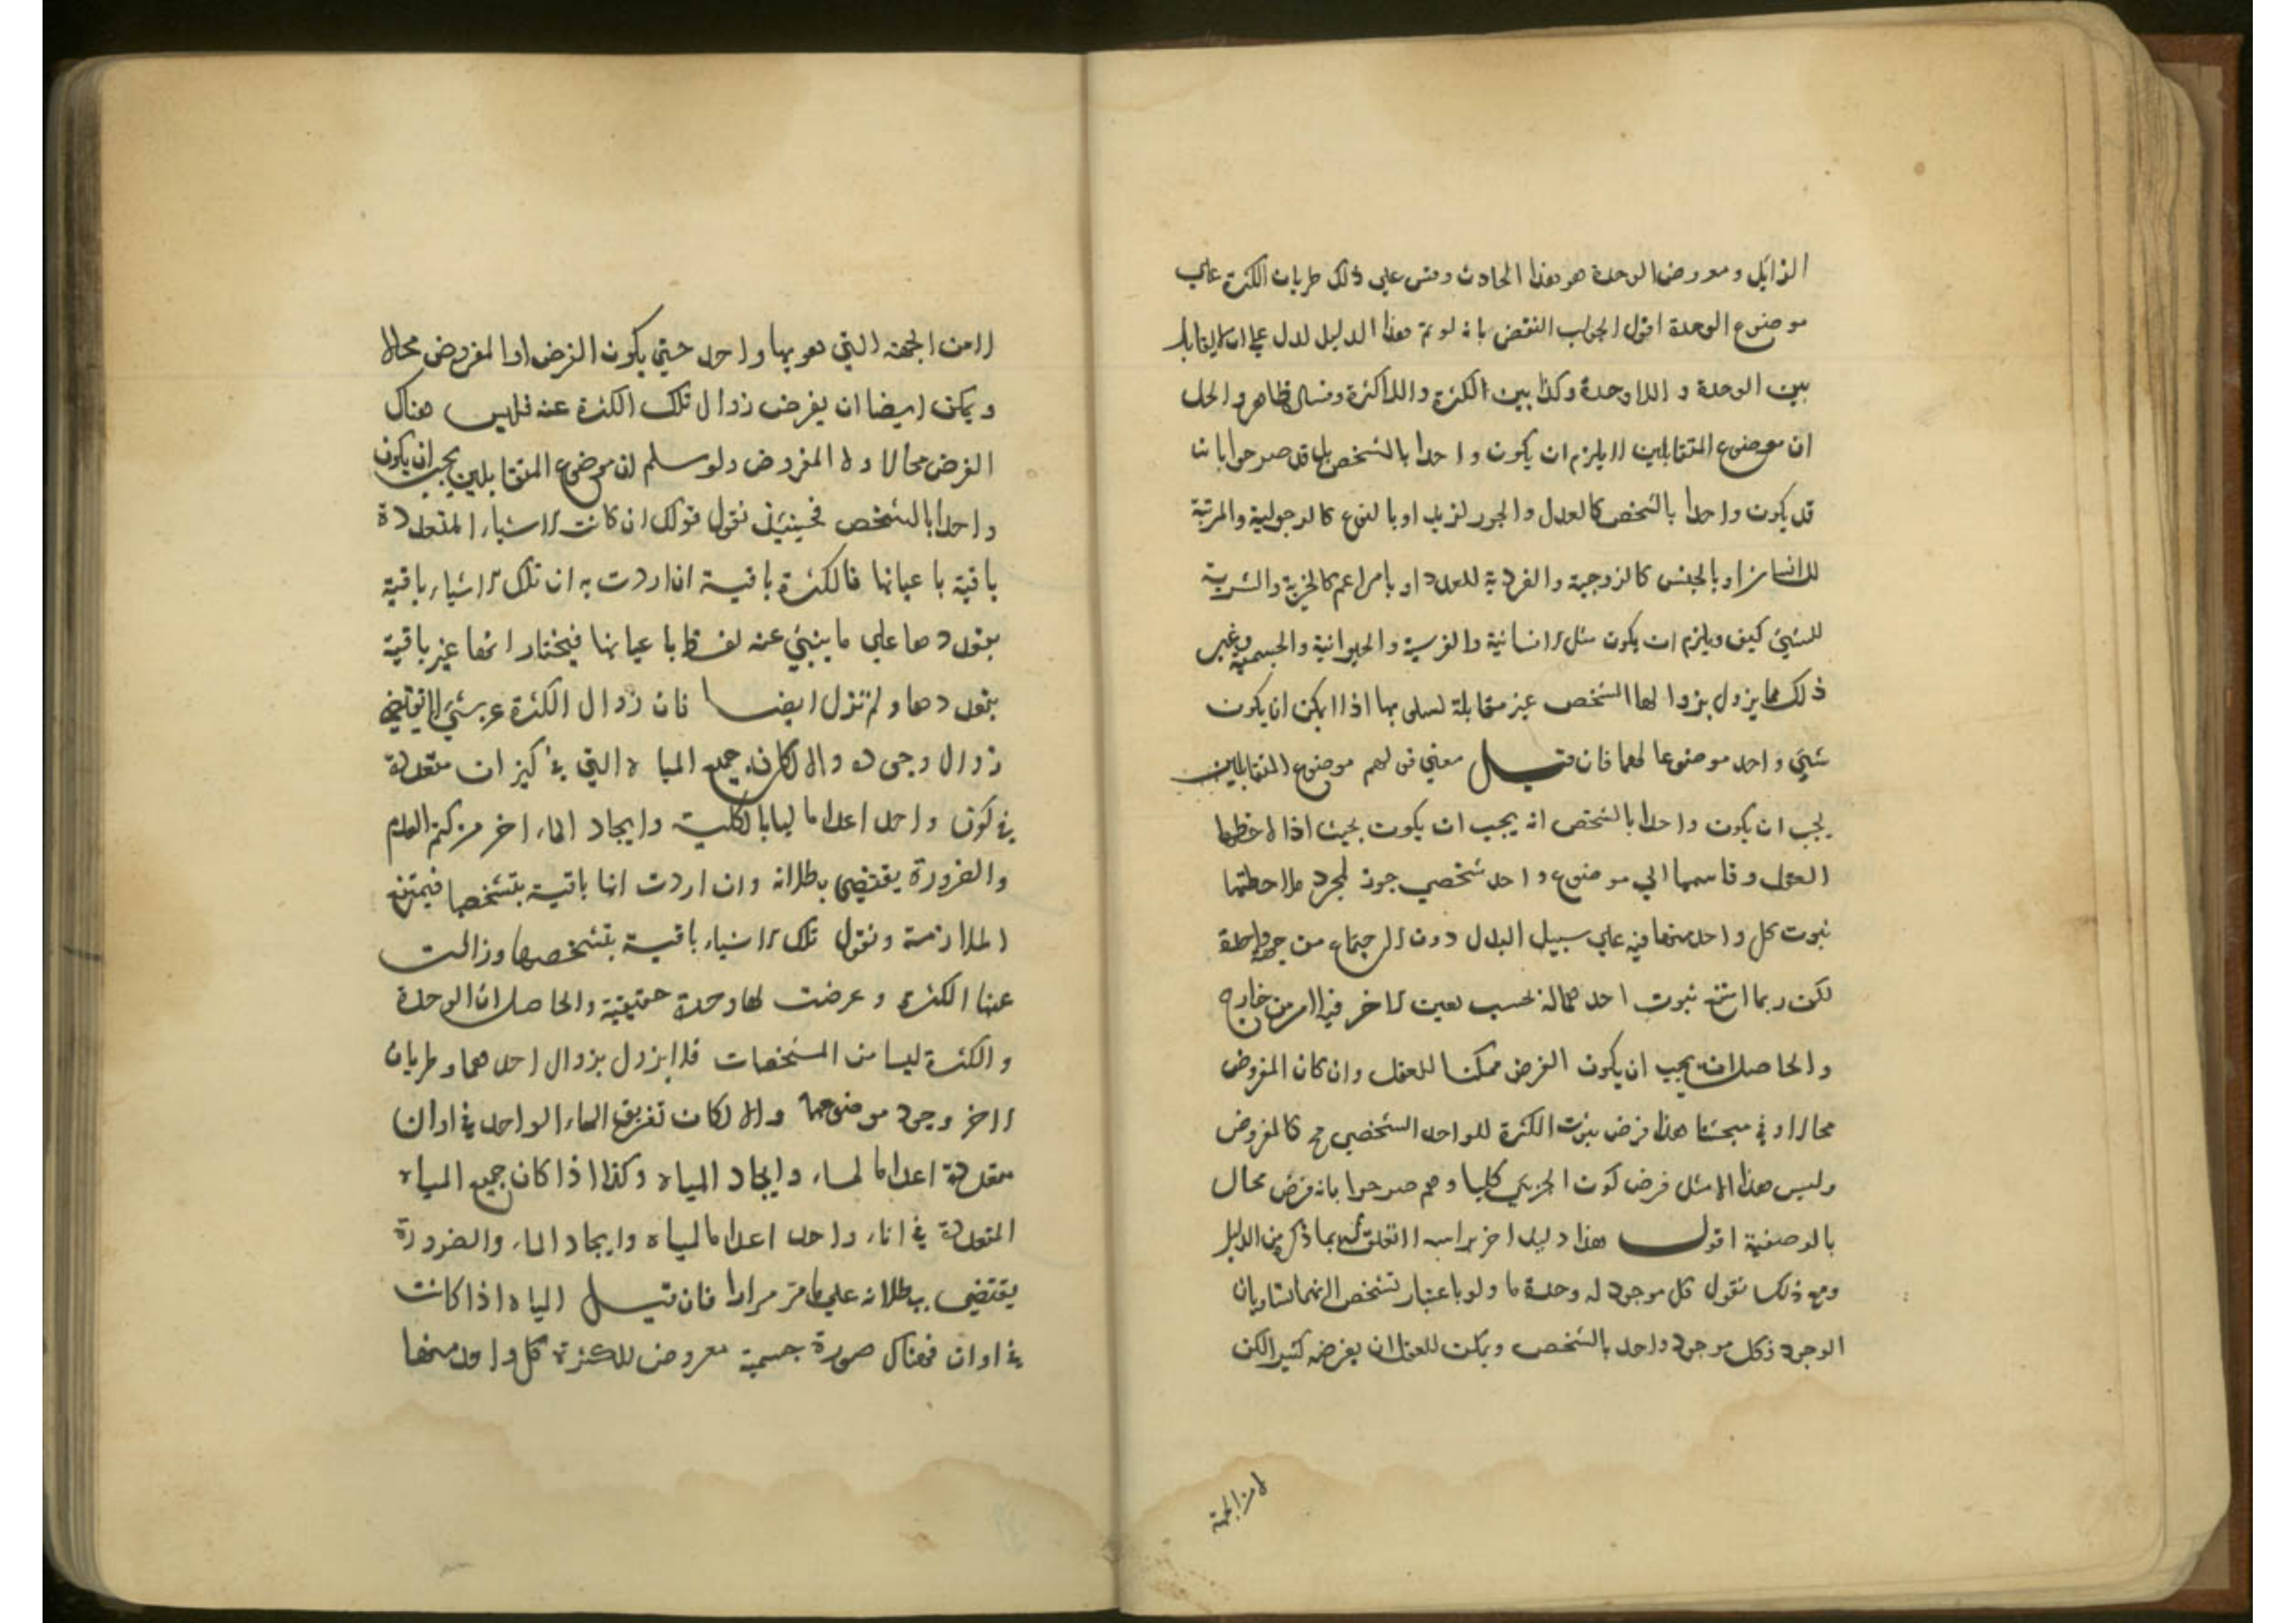 الزايل ومعروض الوحدة هو هذا الحادث وقس علي ذلك طريان الكثرة علي
موضوع الوحدة اقول الجواب النقض بانه لو تم هذا الدليل لدل علي ان لا تقابل
بين الوحدة و اللاوحدة وكذا بين الكثرة واللاكثرة وفساده ظاهر والحل
ان موضوع المتقابلين لا يلزم ان يكون واحدا بالشخص بل قد صرحوا بانه
قد يكون واحدا بالشخص كالعدل والجور لزيد او بالنوع كالرجولية والمرتبة
للانسان او بالجنس كالزوجية والفردية للعدد او بامر اعم كالخيرية والشرية
للشيئ كيف ويلزم ان يكون مثل الانسانية والفرسية والحيوانية والجسمية وغير
ذلك مما يزول بزوالها الشخص غير متقابلة لسلبها اذ لا يمكن ان يكون
شيئ واحد موضوعا لهما فان قيل معني قولهم موضوع المتقابلين
يجب ان يكون واحدا بالشخص انه يجب ان يكون بحيث اذا لاحظهما
العقل وقاسهما الي موضوع واحد شخصي جوز لمجرد ملاحظتهما
ثبوت كل واحد منهما فيه علي سبيل البدل دون الاجتماع من جهة واحدة
لكن ربما امتنع ثبوت احدهما له بحسب تعين الاخر فيه لامر من خارج
والحاصل انه يجب ان يكون الفرض ممكنا للعقل وان كان المفروض
محالا و في مبحثنا هذا فرض ثبوت الكثرة للواحد الشخصي مح كالمفروض
وليس هذا الا مثل فرض كون الجزيي كليا وهم صرحوا بانه فرض محال
بالوصفية اقول هذا دليل اخر براسه لا تعلق له بما ذكر من الدليل
ومع ذلك نقول كل موجود له وحدة ما ولو باعتبار تشخص لانهما تساويان
الوجود فكل موجود واحد بالشخص ويمكن للعقل ان يفرضه كثيرا لكن
لا من الجهة
لا من الجهة التي هو بها واحد حتي يكون الفرض او المفروض محالا
ويمكن ايضا ان يفرض زوال تلك الكثرة عنه فليس هناك
الفرض محالا ولا المفروض ولو سلم ان موضوع المتقابلين يجب ان يكون
واحدا بالشخص فحينيئذ نقول قولك ان كانت الاشياء المتعددة
باقية باعيانها فالكثرة باقية ان اردت به ان تلك الاشياء باقية
بتعددها علي ما ينبئ عنه لفظ باعيانها فيختار انها غير باقية
بتعددها ولم تزل ايضا فان زوال الكثرة عن شيئ لا تقتضي
زوال وجوده والا لكان جمع المياه التي في كيزان متعددة
في كوز واحد اعداما لها بالكلية وايجاد الماء اخر من كتم العدم
والضرورة يقتضي بطلانه وان اردت انها باقية بتشخصها فيمتنع
الملازمة ونقول تلك الاشياء باقية بتشخصها وزالت
عنها الكثرة و عرضت لها وحدة حقيقية والحاصل ان الوحدة
والكثرة ليسا من المشخصات فلا يزول بزوال احدهما وطريان
الاخر وجود موضوعهما والا لكان تفريق الماء الواحد في اوان
متعددة اعداما لماء وايجاد المياه وكذا اذا كان جميع المياه
المتعددة في اناء واحد اعداما لمياه وايجاد الماء والضرورة
يقتضي ببطلانه علي ما مر مرارا فان قيل المياه اذا كانت
في اوان فهناك صورة جسمية معروض للكثرة كل واحد منها